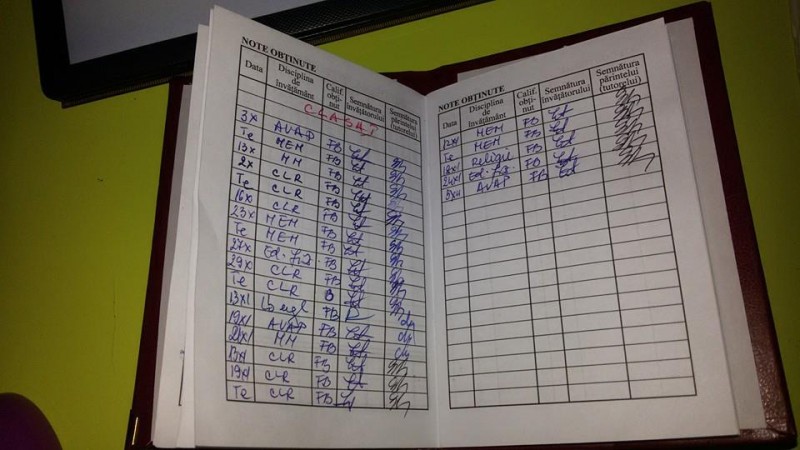 NOTE OBȚINUTE
Data Disciplina de învățământ Calif. obți-nut Semnătura învățătorului Semnătura părintelui (tutorelui)
CLASA I
3X AVAP FB
Te MEM FB
13X MM FB
2X CLR FB
Te CLR FB
16X CLR FB
23X MEM FB
Te MEM FB
27X Ed. fiz. FB
29X CLR FB
Te CLR B
13XI Lb engl FB
19XI AVAP FB
MM FB
13XI CLR FB
19XI CLR FB
Te CLR FB
NOTE OBȚINUTE
Data Disciplina de învățământ Calif. obți-nut Semnătura învățătorului Semnătura părintelui (tutorelui)
12XI MEM FB
Te MEM FB
18XI Religie FB
24XI Ed. fiz. FB
AVAP FB